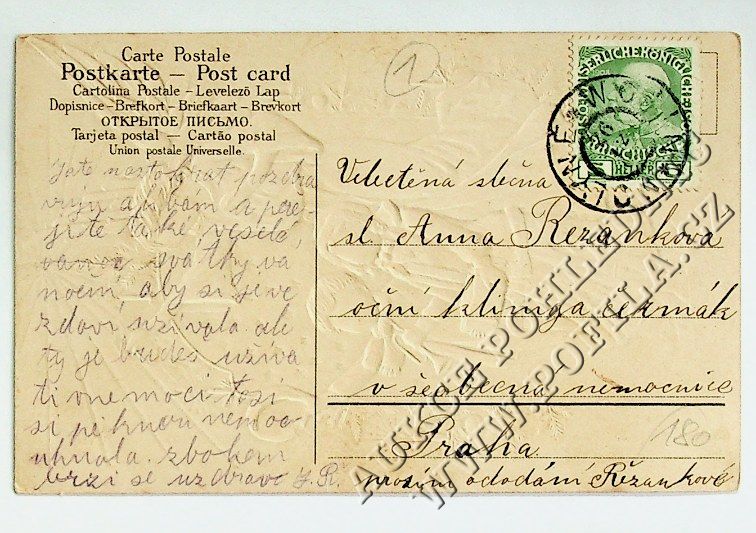 Carte Postale
Postkarte – Post card
Cartolina Postale – Levelező Lap
Dopisnice – Brefkort – Briefkaart – Brevkort
ОТКРЫТОЕ ПИСЬМО.
Tarjeta postal — Cartão postal
Union postale Universelle.
1
KAISERLICHE KÖNIGLICHE
HELLER
pozdra
vuju a libám a
také veselé
svátky va
noční, aby si je ve
zdoví užívala ale
ty je budeš užíva
ti v nemoci
si pěknou nemoc
uhnala zbohem
brzi se uzdrav J. R.
Velectěná slečna
sl. Anna Rezanková
oční klinyga čermák
v šeobecna nemocnice
Praha
prosím ododání Řezankové
180
AUKCE POHLEDŮ
WWW.POFILA.CZ